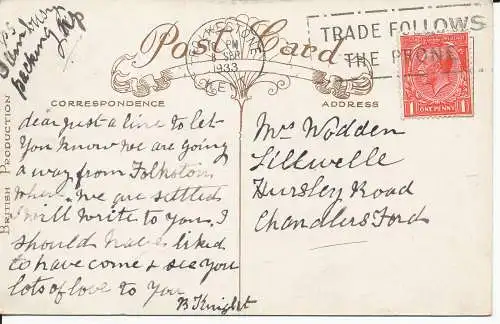 P.S.
packing up
Post Card
FOLKESTONE
PM
8 SEP
1933
TRADE FOLLOWS
THE PHONE
1 ONE PENNY 1
CORRESPONDENCE
ADDRESS
BRITISH PRODUCTION
dear just a line to let
You know we are going
away from Folkston
when we are settled
I will write to you. I
should have liked
to have come & see you
lots of love to you
B Knight
Mrs Wodden
Lillwelle
Hursley Road
Chandlers Ford